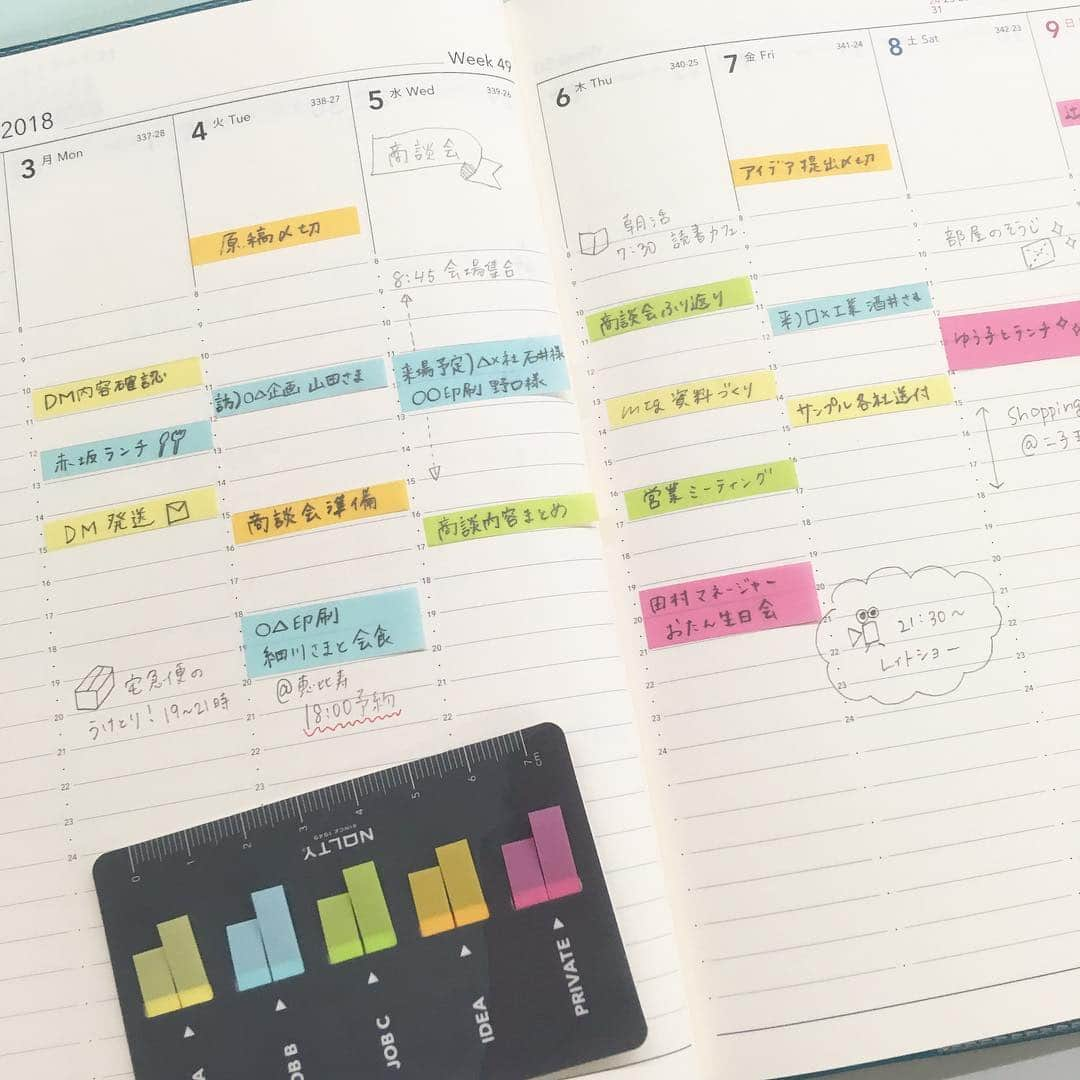 2018
Week 49
3 月 Mon
337-28
DM内容確認
赤坂ランチ
DM 発送
宅急便の
うけとり! 19~21時
4 火 Tue
338-27
原稿〆切
訪)○△企画 山田さま
商談会準備
○△印刷
細川さまと会食
@恵比寿
18:00予約
5 水 Wed
339-26
商談会
8:45 会場集合
来場予定)△×社 石井様
○○印刷 野口様
商談内容まとめ
6 木 Thu
340-25
朝活
7:30 読書カフェ
商談会ふり返り
mtg 資料づくり
営業ミーティング
田村マネージャー
おたん生日会
7 金 Fri
341-24
アイデア提出〆切
来)□×工業 酒井さま
サンプル各社送付
21:30~
レイトショー
8 土 Sat
342-23
部屋のそうじ
ゆう子とランチ
Shopping
@二子玉
31
9 日
0 1 2 3 4 5 6 7 cm
NOLTY
SINCE 1949
JOB C
IDEA
PRIVATE